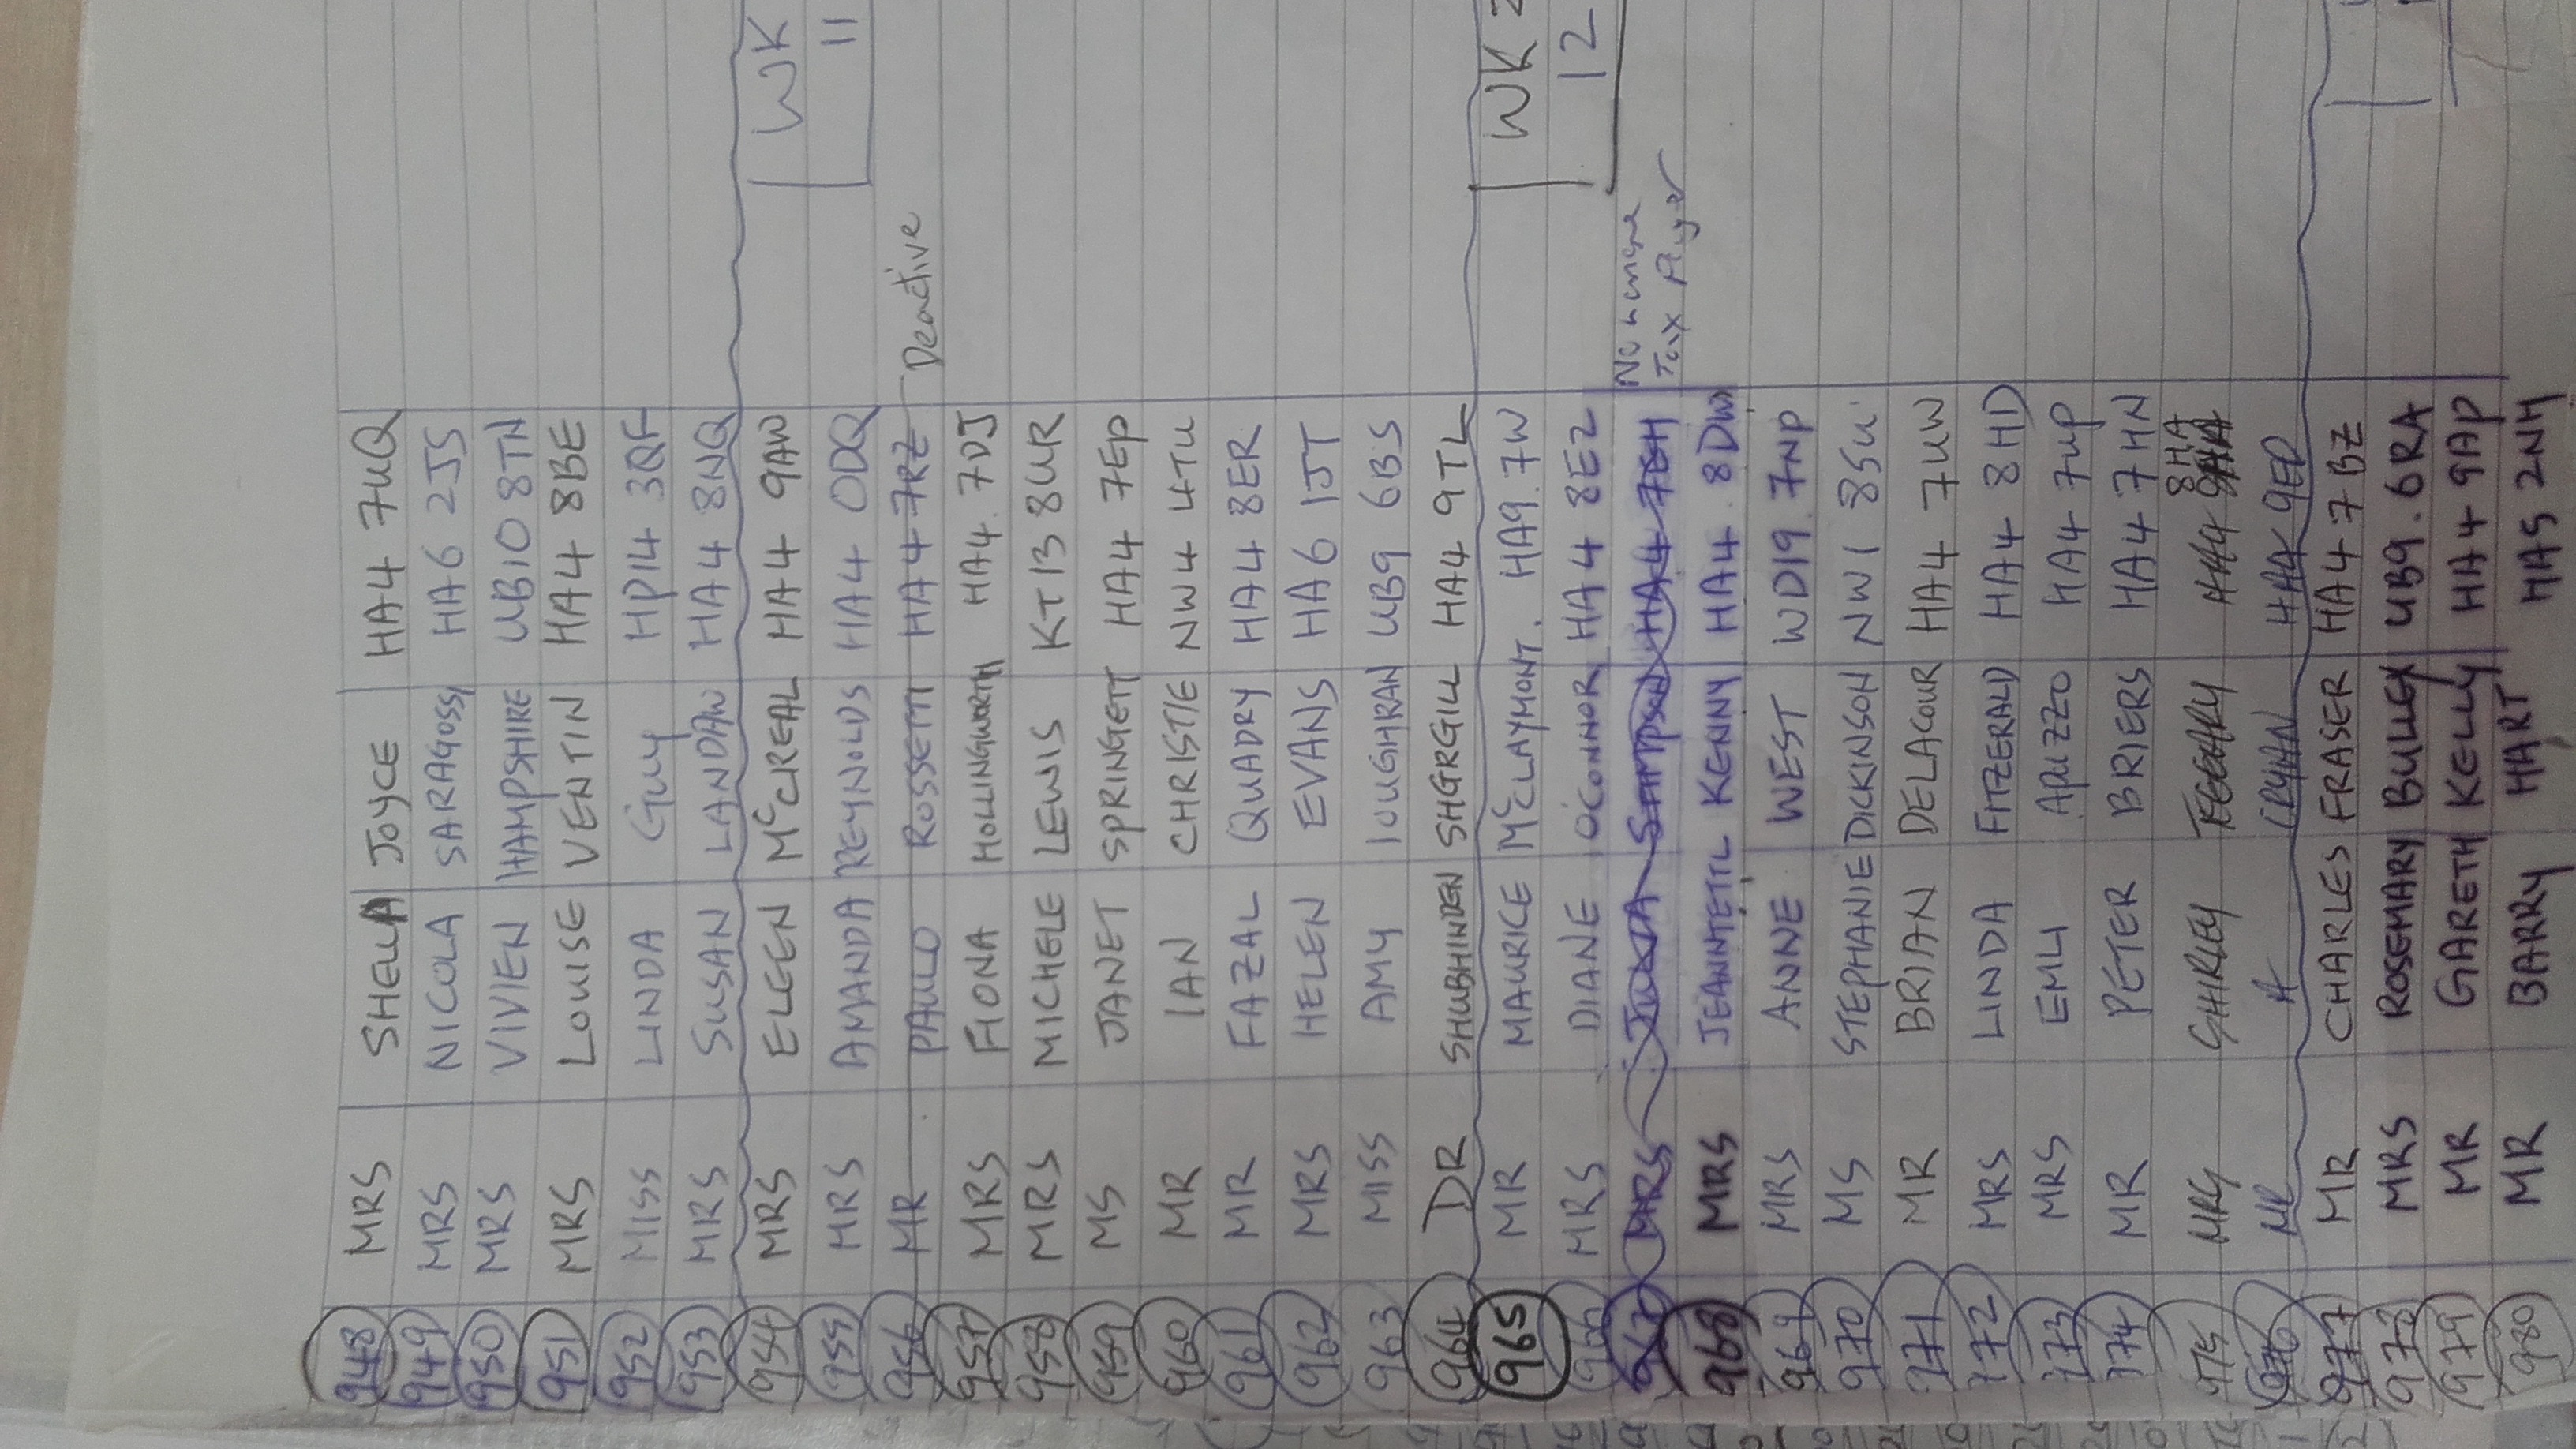 948 MRS SHEILA JOYCE HA4 7UQ
949 MRS NICOLA SARAGOSSI HA6 2JS
950 MRS VIVIEN HAMPSHIRE UB10 8TN
951 MRS LOUISE VENTIN HA4 8BE
952 MISS LINDA GUY HP14 3QF
953 MRS SUSAN LANDAW HA4 8NQ
954 MRS EILEEN McCREAL HA4 9AW WK
955 MRS AMANDA REYNOLDS HA4 0DQ 11
956 MR PAULO ROSSETTI HA4 7RZ Deactive
957 MRS FIONA HOLLINGWORTH HA4. 7DJ
958 MRS MICHELE LEWIS KT13 8UR
959 MS JANET SPRINGETT HA4 7EP
960 MR IAN CHRISTIE NW4 4TU
961 MR FAZAL QUADRY HA4 8ER
962 MRS HELEN EVANS HA6 1JT
963 MISS AMY LOUGHRAN UB9 6BS
964 DR SHUBHINDEN SHGRGILL HA4 9TL
965 MR MAURICE McCLAYMONT. HA9. 7W WK 2
966 MRS DIANE O'CONNOR HA4 8EZ 12
967 MRS JULIA SIMPSON HA4 7EH No longer
Tax Player
968 MRS KENNY HA4 8DW
969 MRS ANNE WEST WD19. 7NP
970 MS STEPHANIE DICKINSON NW1 8SU
971 MR BRIAN DELACOUR HA4 7UW
972 MRS LINDA FITZERALD HA4 8HD
973 MRS EMLI APUZZO HA4 7UP
974 MR PETER BRIERS HA4 7HN
8HA
975 MRS SHIRLEY TEGGARY HA4 8HA
976 MR A CRYAN HA4 9ED
977 MR CHARLES FRASER HA4 7BZ
978 MRS ROSEMARY BULLEX UB9. 6RA
979 MR GARETH KELLY HA4 9AP
980 MR BARRY HART HA5 2NH